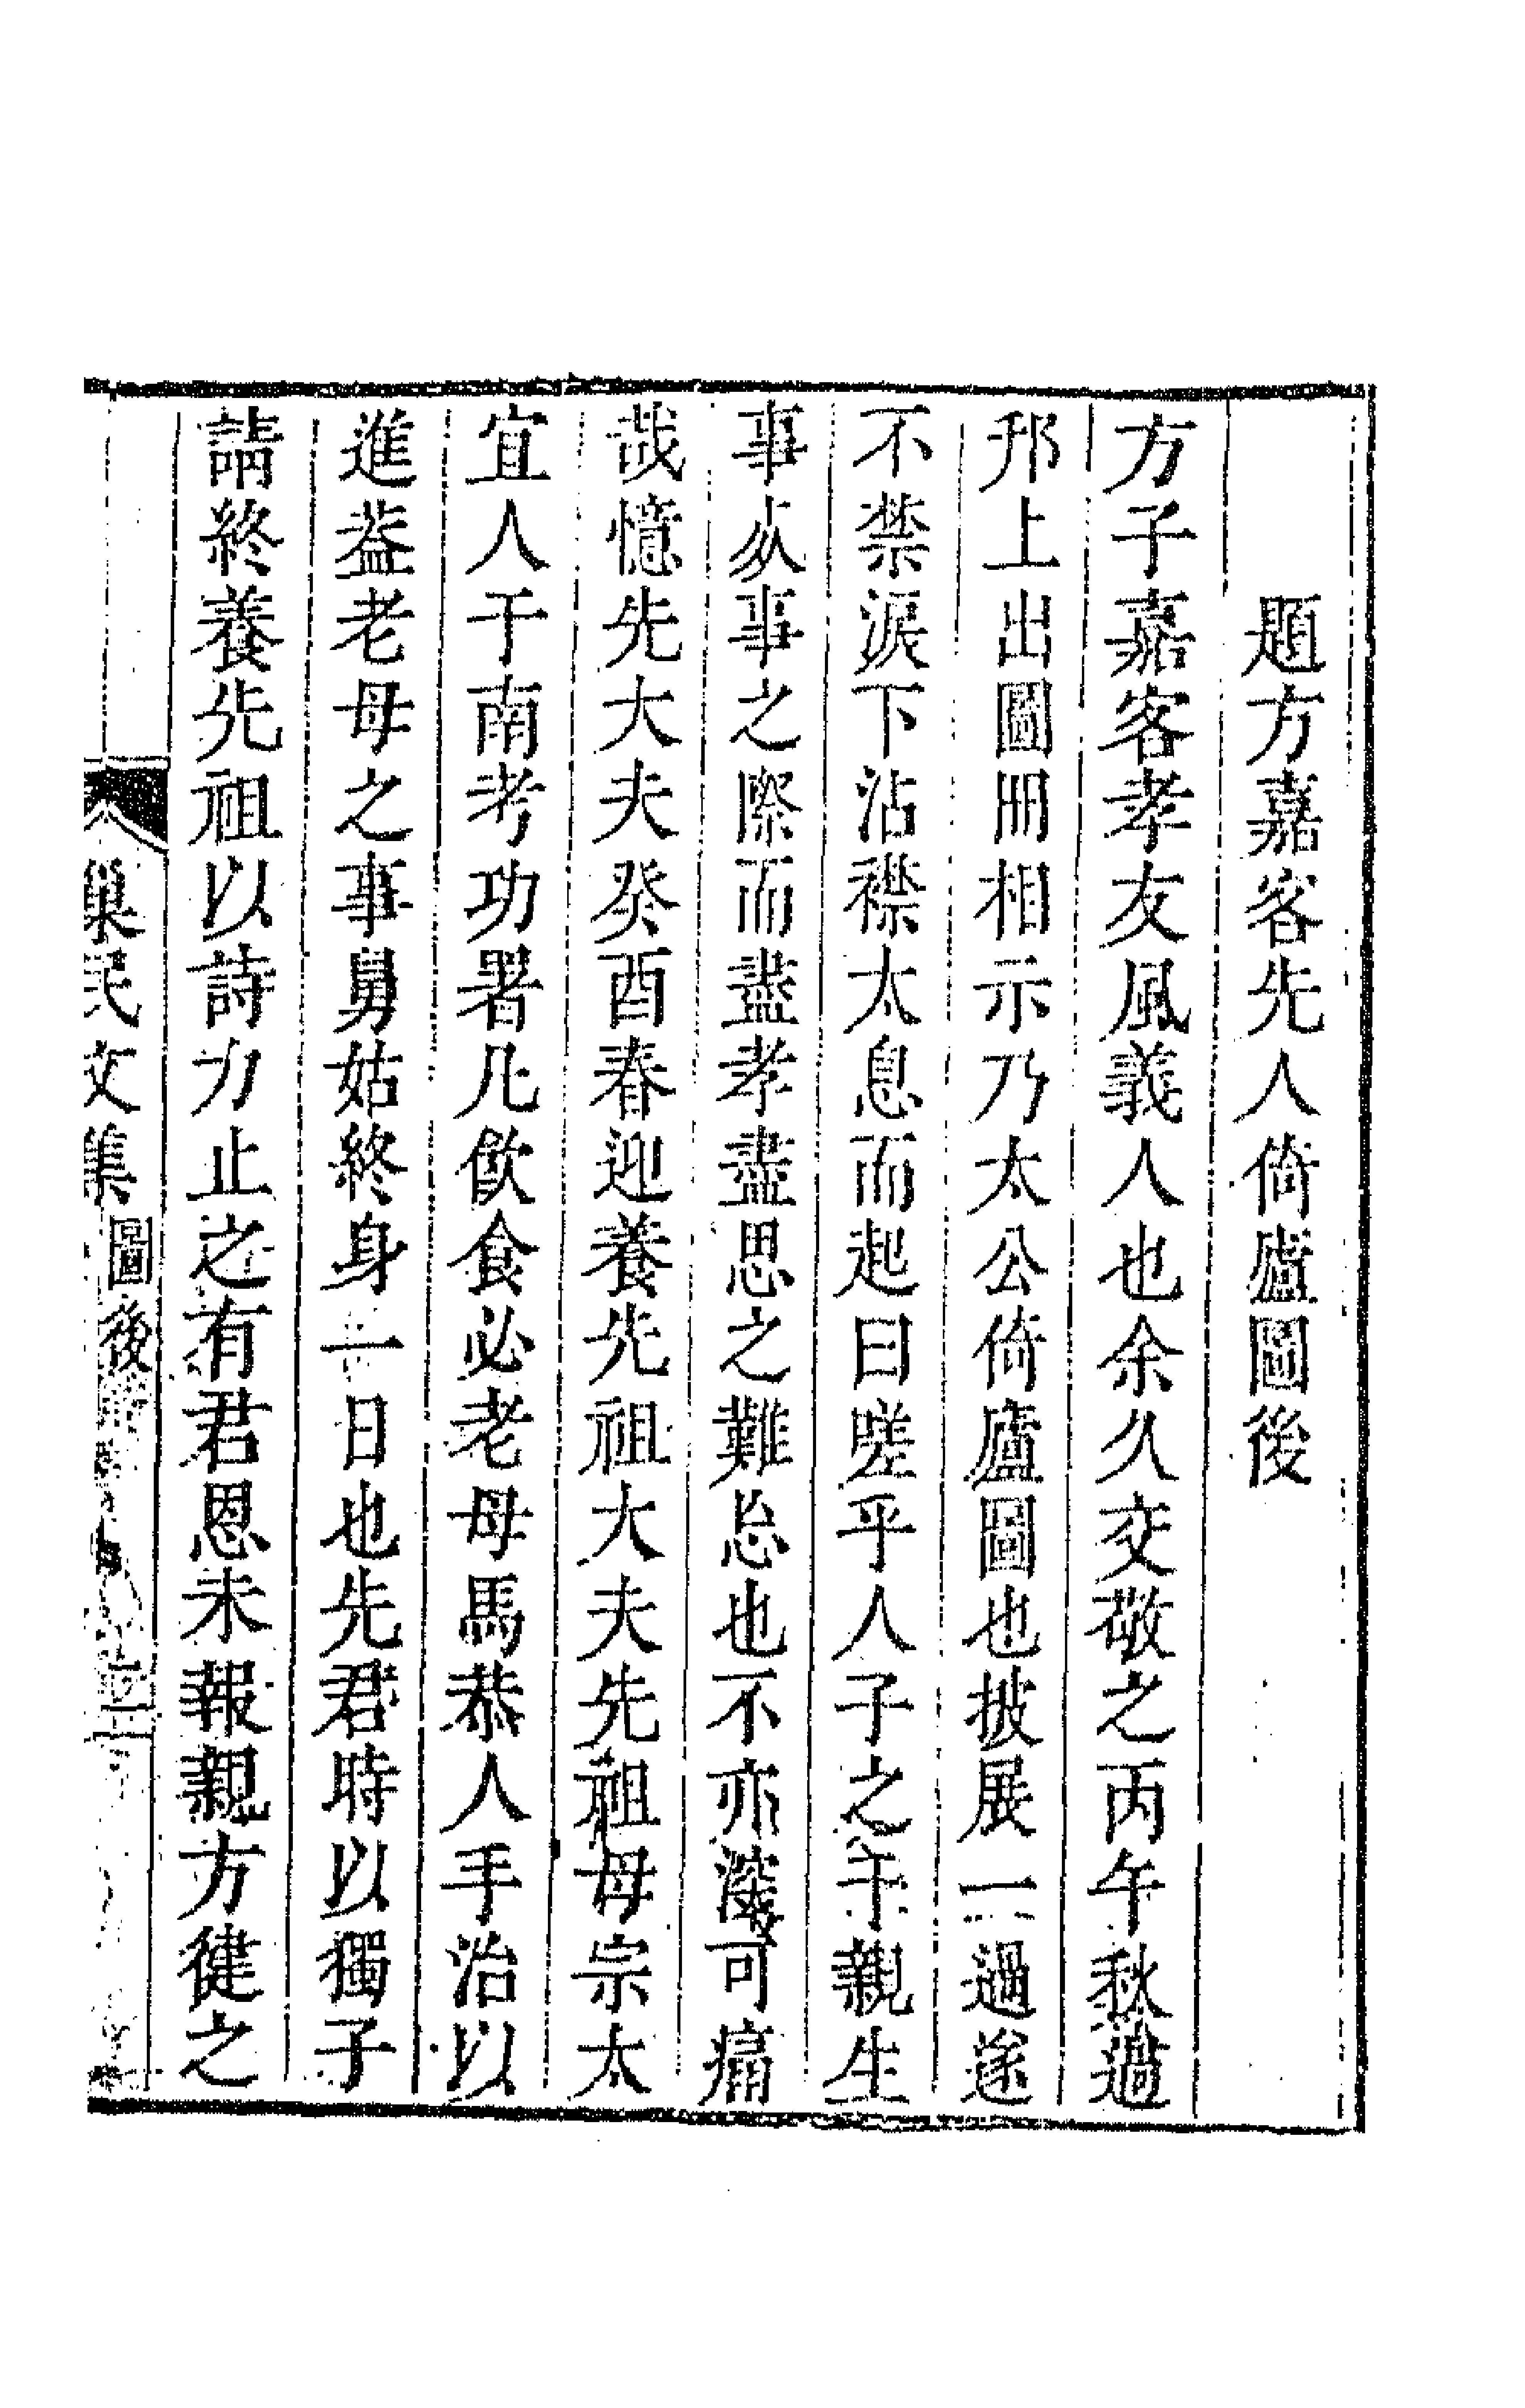 題方嘉客先人倚廬圖後
方子嘉客孝友風義人也余久交敬之丙午秋過
邗上出圖冊相示乃太公倚廬圖也披展一過遂
不禁淚下沾襟太息而起曰嗟乎人子之于親生
事从事之際而盡孝盡思之難忘也不亦深可痛
哉憶先大夫癸酉春迎養先祖大夫先祖母宗太
宜人于南考功署凡飲食必老母馬恭人手治以
進葢老母之事舅姑終身一日也先君時以獨子
請終養先祖以詩力止之有君恩未報親方健之
巢民文集 圖後